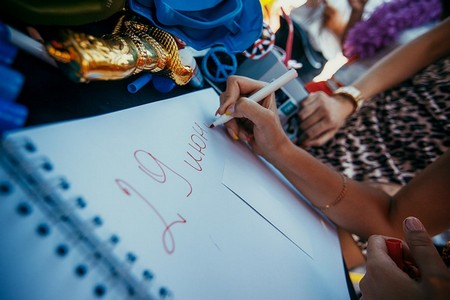 29 июн